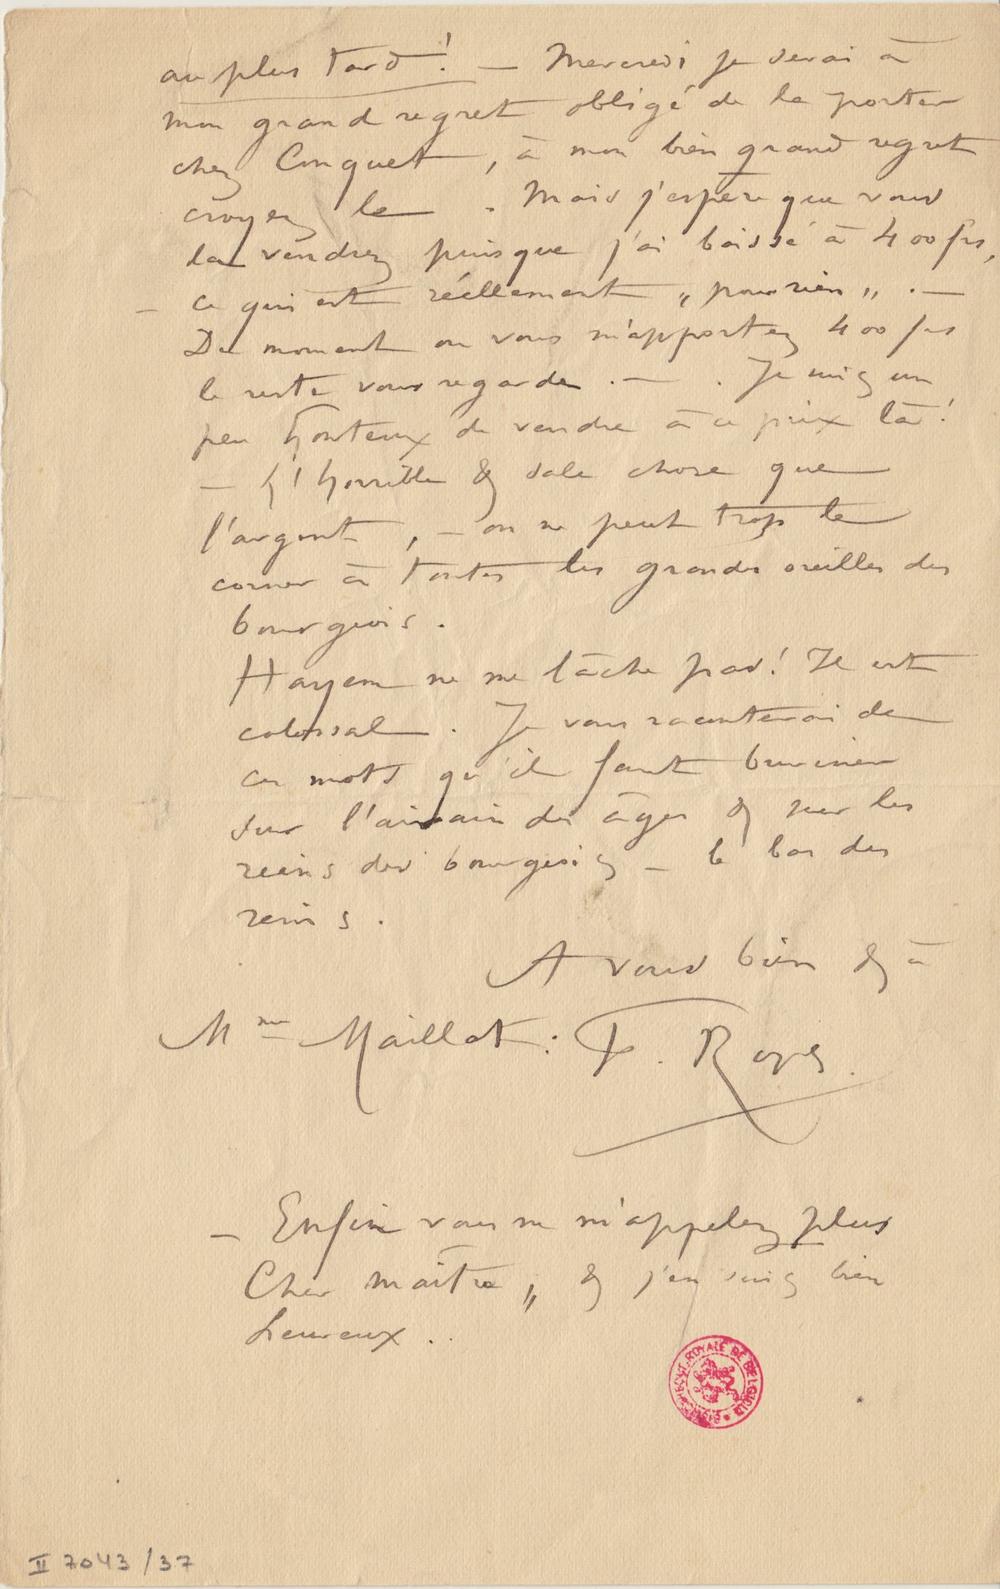 au plus tard ! — Mercredi je serai à
mon grand regret obligé de la porter
chez Conquet, à mon bien grand regret
croyez le . Mais j'espère que vous
la vendrez puisque j'ai baissé à 400 frs,
— ce qui est réellement „ pour rien „ . —
Du moment où vous m'apportez 400 frs
le reste vous regarde . — . Je suis un
peu honteux de vendre à ce prix là !
— L'horrible & sale chose que
l'argent , — on ne peut trop le
corner à toutes les grandes oreilles des
bourgeois .
Hayem ne me lâche pas ! Il est
colossal . Je vous raconterai de
ces mots qu'il faut buriner
sur l'airain des âges & sur les
reins des bourgeois — le bas des
reins .
A vous bien & à
Mme Maillat : F. Rops
— Enfin vous ne m'appelez plus
Cher maître „ & j'en suis bien
heureux ..
BIBLIOTHEQUE ROYALE DE BELGIQUE
II 7043 / 37